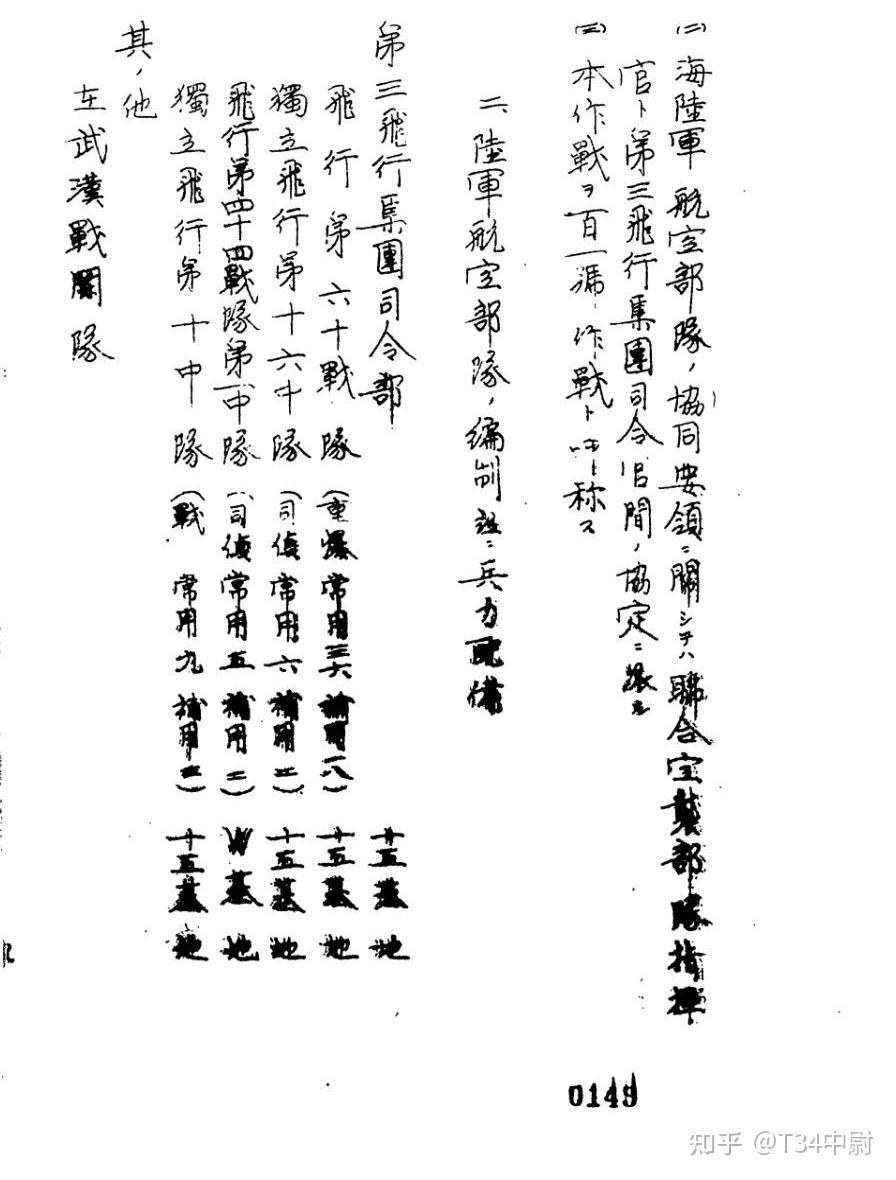 (二) 海陸軍航空部隊ノ協同要領ニ關シテハ聯合空襲部隊指揮
官ト第三飛行集團司令官間ノ協定ニ據ル
(三) 本作戰ヲ百一號作戰ト呼称ス
二、陸軍航空部隊ノ編制竝ニ兵力配備
第三飛行集團司令部 十五基地
飛行第六十戰隊 (重爆 常用三六 補用一八) 十五基地
獨立飛行第十六中隊 (司偵 常用六 補用二) 十五基地
飛行第四十四戰隊第一中隊 (司偵 常用五 補用二) W基地
獨立飛行第十中隊 (戰 常用九 補用三) 十五基地
其ノ他
在武漢戰鬪隊
0149
知乎 @T34中尉